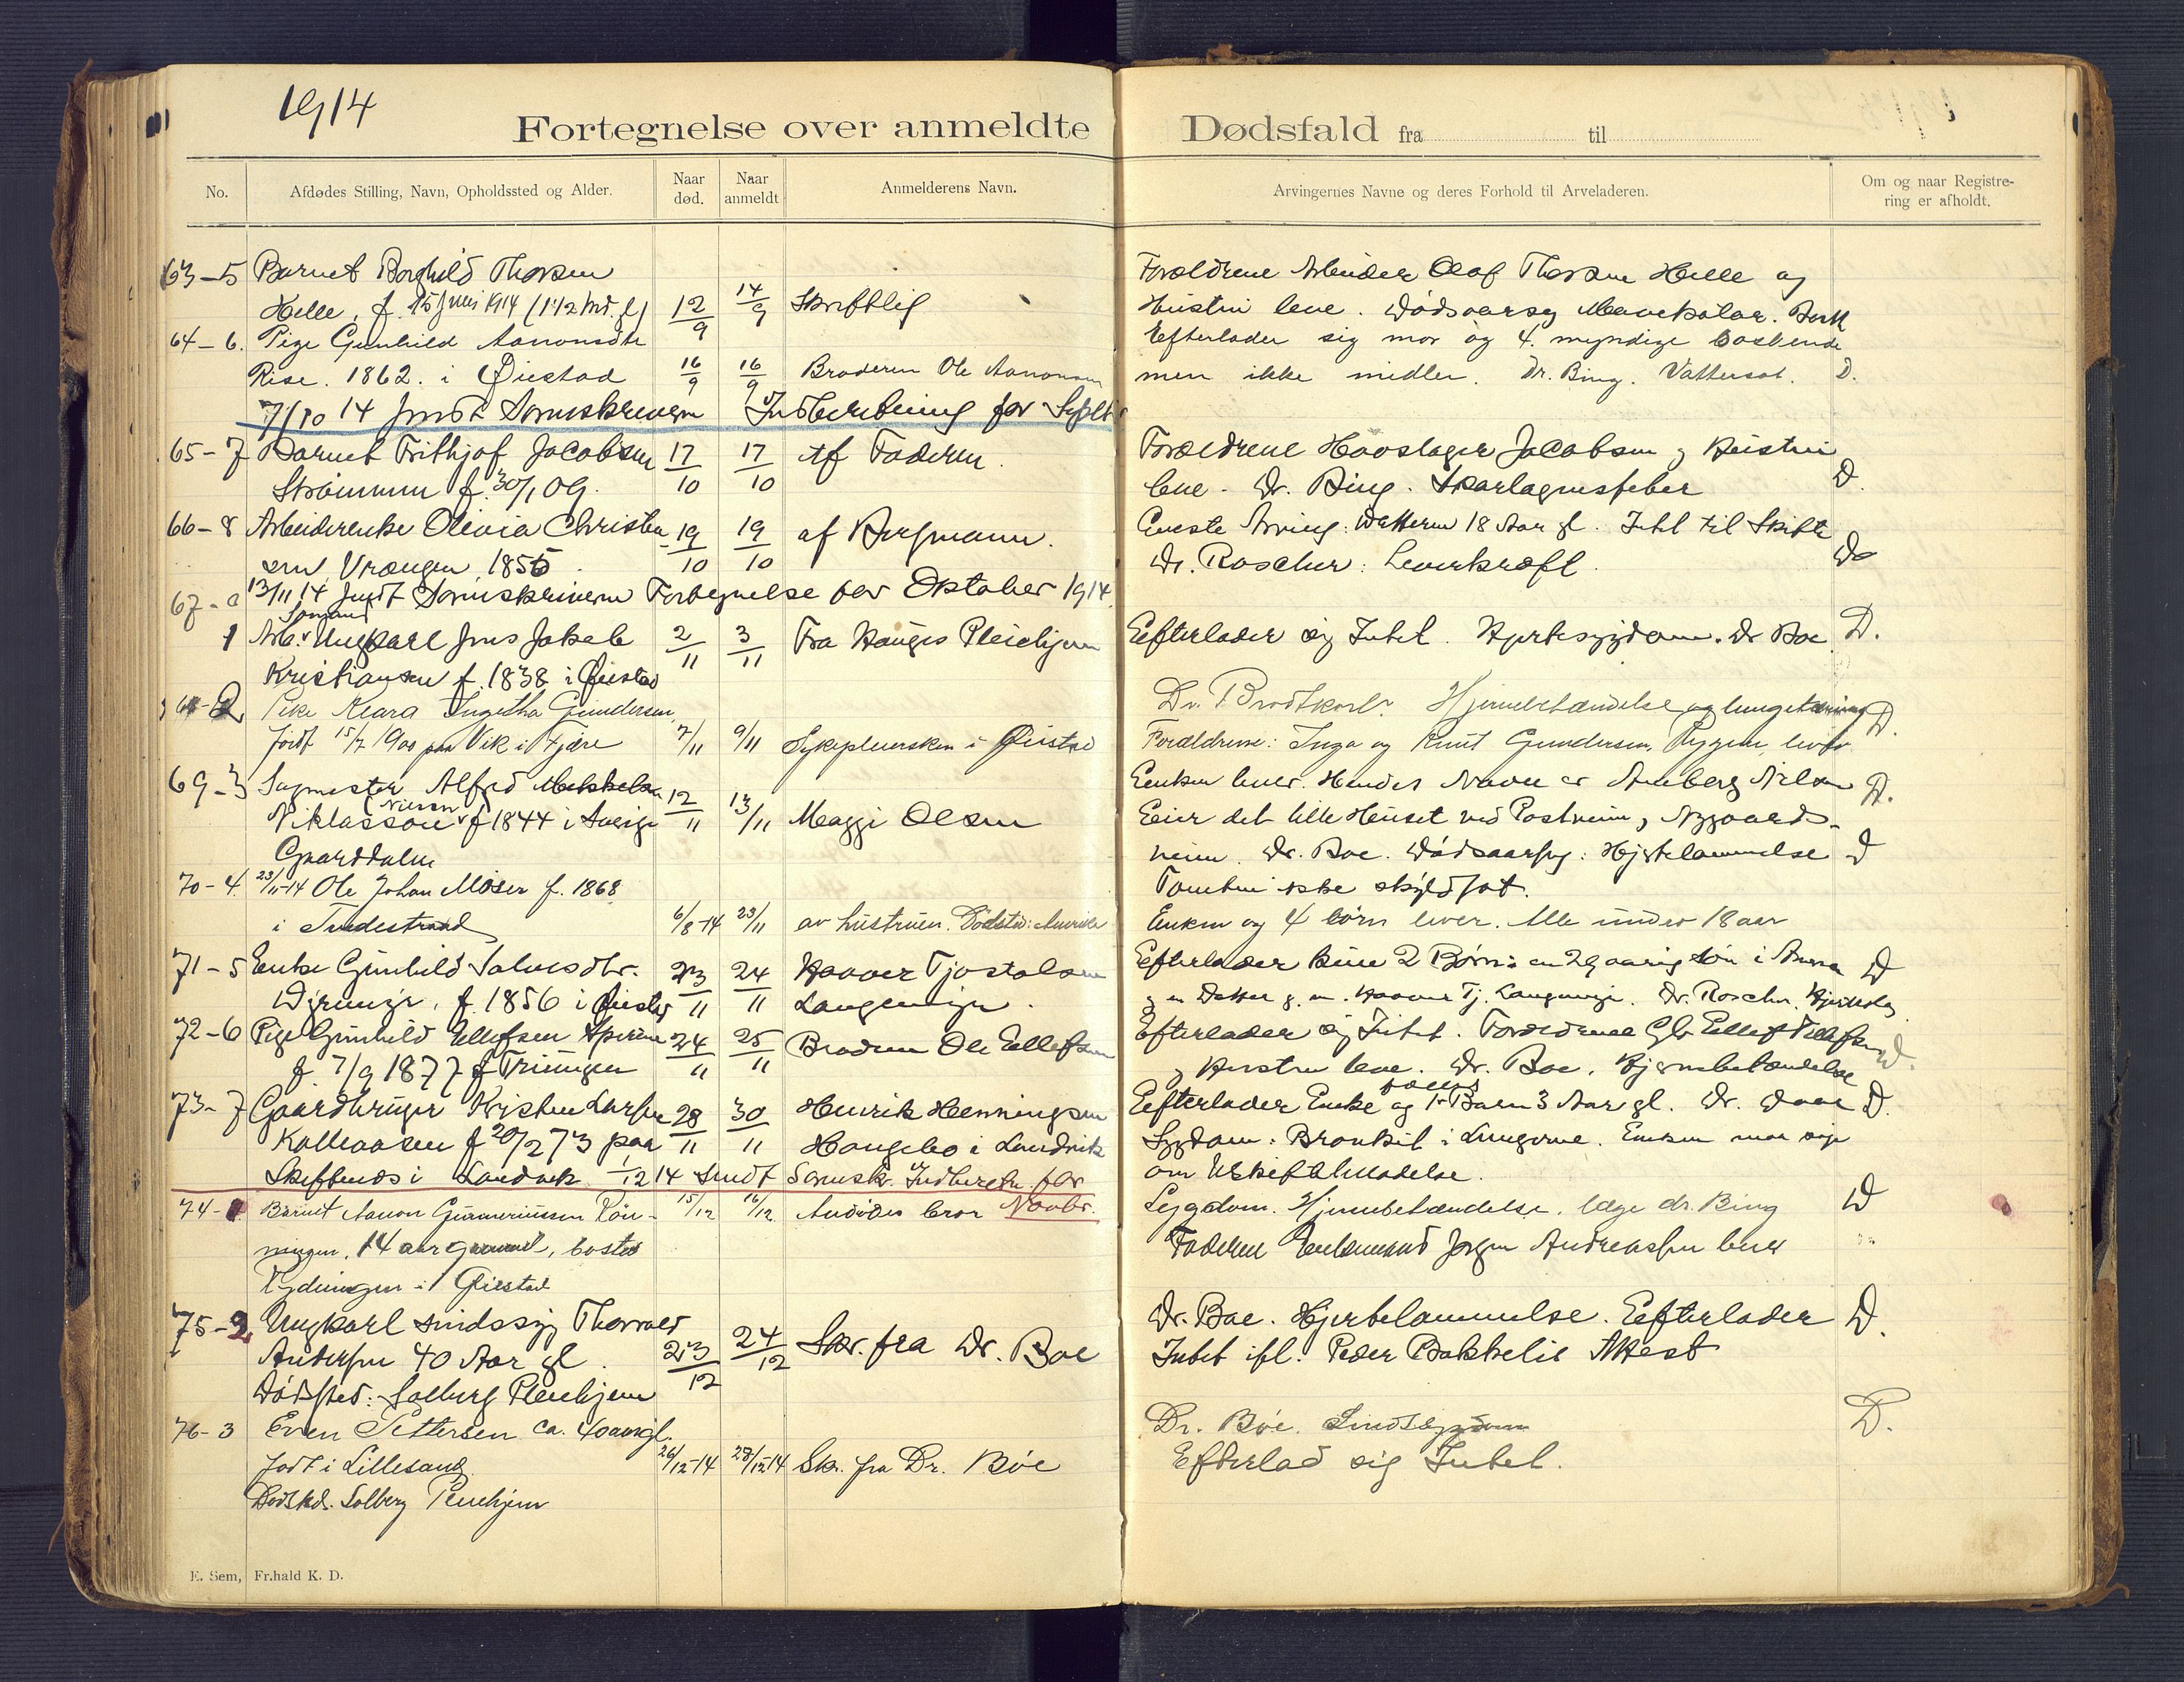 1914
Fortegnelse over anmeldte Dødsfald fra til
No.
Afdødes Stilling, Navn, Opholdssted og Alder.
Naar død.
Naar anmeldt
Anmelderens Navn.
Arvingernes Navne og deres Forhold til Arveladeren.
Om og naar Registrering er afholdt.
63-5 Barnet Borghild Thorsen
Helle, f. 15 1914 (1 1/2 Md. gl) 12/9 14/9 Skriftlig
Forældrene Arbeider Olaf Thorsen Helle og
Hustru leve. Dødsaarsag Mavekatar.
64-6. Pige Gunhild Aanonsdtr
Rise. 1862. i Øiestad 16/9 16/9 Broderen Ole Aanonsen
Efterlader sig mor og 4 myndige
men ikke midler. Dr. Bing. Vattersot. D.
7/10 14 sendt Sorenskriveren Indberetning for Septbr
65-7 Barnet Frithjof Jacobsen 17/10 17/10 Af Faderen.
Strømmen f. 30/1 09.
Forældrene Hovslager Jacobsen og Hustru
leve. Dr. Bing. Skarlagensfeber D.
66-8 Arbeiderenke Olivia Christen- 19/10 19/10 af Bergmann.
sen Vrængen 1855.
Eneste Arving: Datteren 18 Aar gl. Intet til Skifte
Dr. Roscher: Leverkræft. Do
13/11 14 sendt Sorenskriveren Fortegnelse for Oktober 1914.
67-
1 Arb. Ungkarl Jens Jakob 2/11 3/11 Fra Hauges Pleiehjem
Kristiansen f. 1838 i Øiestad
Efterlader sig Intet. Hjertesygdom. Dr Boe. D.
68-2 Pike Klara Ingetha Gundersen
født 15/7 1900 paa Vik i Fjære 7/11 9/11 Sykepleiersken i Øiestad
Dr. Brodtkorb. Hjernebetændelse og lungetæring D.
Forældrene: Inga og Knut Gundersen, Ryggen, lever
69-3 Sagmester Alfred
Niklasson (Nilsen) f 1844 i Sverige 12/11 13/11 Maggi Olsen
Gaarddalen
Enken lever. Hendes Navn er Amberg Nilsen D.
Eier det lille Huset ved Postveien, Nygaards-
veien. Dr. Boe. Dødsaarsag: Hjertelammelse D
Tomten ikke skyldsat.
70-4. 23/11-14 Ole Johan Moser f. 1868
i Tvedestrand 6/8-14 23/11 av hustruen. Dødsted: Amerika
Enken og 4 børn lever. Alle under 18 aar
71-5 Enke Gunhild Salvesdtr. 23/11 24/11 Haaver Tjostolsen
f. 1856 i Øiestad Langemyr.
Efterlader kun 2 Børn: en 29 aarig søn i
og en Datter g. m. Haaver Tj. Langemyr. Dr. Roscher. D
72-6 Pige Gunhild Ellefsen 24/11 25/11 Broderen Ole Ellefsen
f. 7/9 1877
Efterlader sig Intet. Forældrene Ellef Ellefsen
og Hustru leve. Dr. Boe. Hjernebetændelse D.
73-7 Gaardbruger Kristen Larsen 28/11 30/11 Henrik Henningsen
f 20/2 73 paa Haugebo i Landvik
Skiftenes i Landvik
Efterlader Enke og 1 fælles Barn 3 Aar gl. Dr. D.
Sygdom: Bronkit i Lungerne. Enken maa søge
om Uskiftetilladelse.
1/12 14 sendt Sorenskr. Indberetn. for Novbr.
74-1 Barnet Aanon Gunneriussen Røn- 15/12 16/12 Avdødes bror
ningen, 14 aar gammel, bosted
i Øiestad
Sygdom. Hjernebetændelse. læge dr. Bing D
Faderen Enkemand Jørgen Andreassen lever
75-2 Ungkarl sindssyg Thorvald
Andersen 40 Aar gl. 23/12 24/12 Skr. fra Dr. Boe
Dødssted: Solberg Pleiehjem
Dr. Boe. Hjertelammelse. Efterlader D.
Intet ifl. Peder Bakkelis Attest
76-3 Even Pettersen ca. 40 aar gl.
født i Lillesand 26/12-14 28/12-14 Skr. fra Dr. Bøe
Dødssted. Solberg Pleiehjem
Dr. Bøe. Sindssygdom D.
Efterlod sig Intet.
E. Sem, Fr.hald K. D.